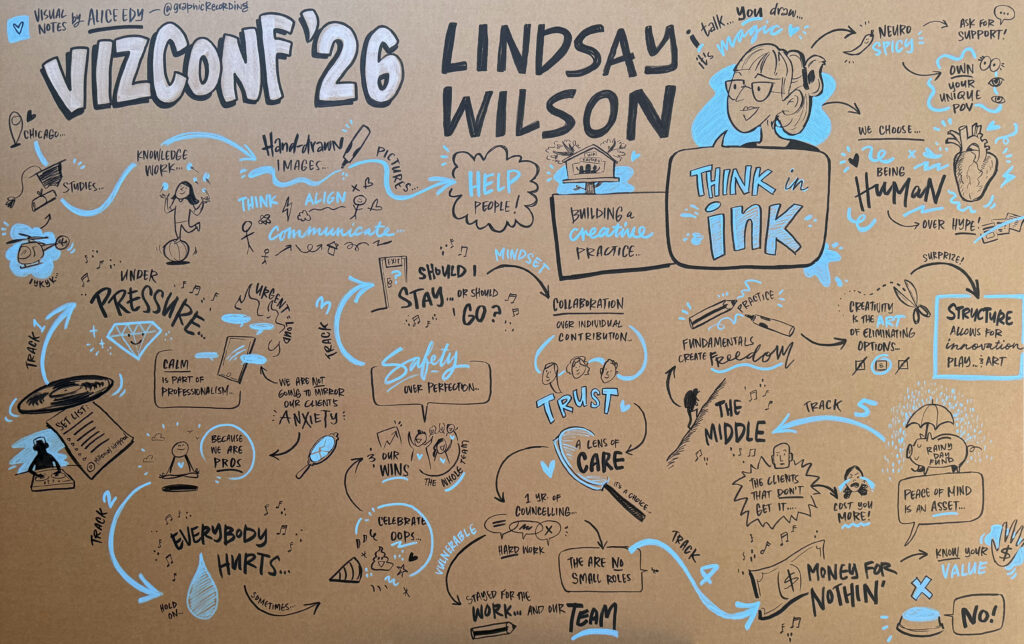 VISUAL
NOTES by ALICE EDY — @graphicRecording
VIZCONF '26
LINDSAY
WILSON
i talk... you draw...
it's magic
NEURO
SPICY
ASK FOR
SUPPORT!
OWN
YOUR
UNIQUE
POV
CHICAGO...
STUDIES...
IYKYK
KNOWLEDGE
WORK...
Hand-drawn
IMAGES...
PICTURES...
THINK ALIGN
communicate...
HELP
PEOPLE!
BUILDING a
creative
PRACTICE...
THINK in
ink
WE CHOOSE...
BEING
HUMAN
OVER HYPE!
TRACK 1
UNDER
PRESSURE...
URGENT
LOUD
CALM
IS PART OF
PROFESSIONALISM...
WE ARE NOT
GOING TO MIRROR
OUR CLIENTS
ANXIETY
SET LIST:
BECAUSE
WE ARE
PROS
TRACK 2
EVERYBODY
HURTS...
HOLD
ON...
SOMETIMES...
TRACK 3
EXIT
?
SHOULD I
STAY... OR SHOULD
GO?
MINDSET
Safety
OVER PERFECTION...
OUR
WINS
THE WHOLE TEAM
CELEBRATE
OOPS...
VULNERABLE
COLLABORATION
OVER INDIVIDUAL
CONTRIBUTION...
TRUST
A LENS OF
CARE
IT'S A CHOICE
1 YR. OF
COUNCELLING...
HARD WORK
STAYED FOR THE
WORK... AND OUR TEAM
THE ARE NO
SMALL ROLES
TRACK 4
MONEY FOR
NOTHIN'
$
KNOW YOUR
VALUE
$
X
NO!
PRACTICE
FUNDAMENTALS
CREATE FREEDOM
CREATIVITY
IS THE ART
OF ELIMINATING
OPTIONS...
SURPRIZE!
STRUCTURE
ALLOWS FOR
innovation
PLAY... & ART
TRACK 5
THE
MIDDLE
THE CLIENTS
THAT DON'T
GET IT...
COST YOU
MORE!
RAINY
DAY
FUND
PEACE OF MIND
IS AN ASSET...